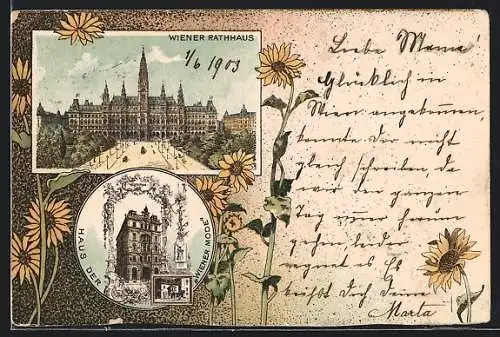 WIENER RATHHAUS
1/6 1903
HAUS DER WIENER MODE
Liebe Mama!
Glücklich in
Wien angekommen,
konnte Dir nicht
gleich schreiben, da
wir den ganzen
Tag herum
gehen, leider
regnet es. Es
küßt Dich Deine
Marta